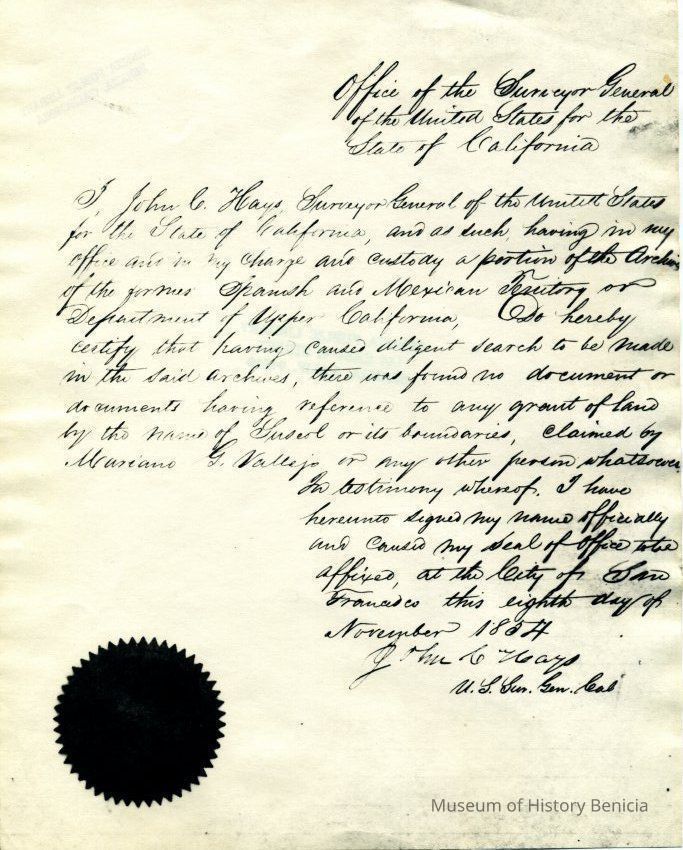 Office of the Surveyor General
of the United States for the
State of California
I, John C. Hays, Surveyor General of the United States
for the State of California, and as such, having in my
office and in my charge and custody a portion of the Archives
of the former Spanish and Mexican Territory or
Department of Upper California, Do hereby
certify that having caused diligent search to be made
in the said archives, there was found no document or
documents having reference to any grant of land
by the name of Suscol or its boundaries, claimed by
Mariano G. Vallejo or any other person whatsoever.
In testimony whereof, I have
hereunto signed my name officially
and caused my seal of office to be
affixed, at the City of San
Francisco this eighth day of
November 1854
John C Hays
U.S. Sur. Gen. Cal
Museum of History Benicia